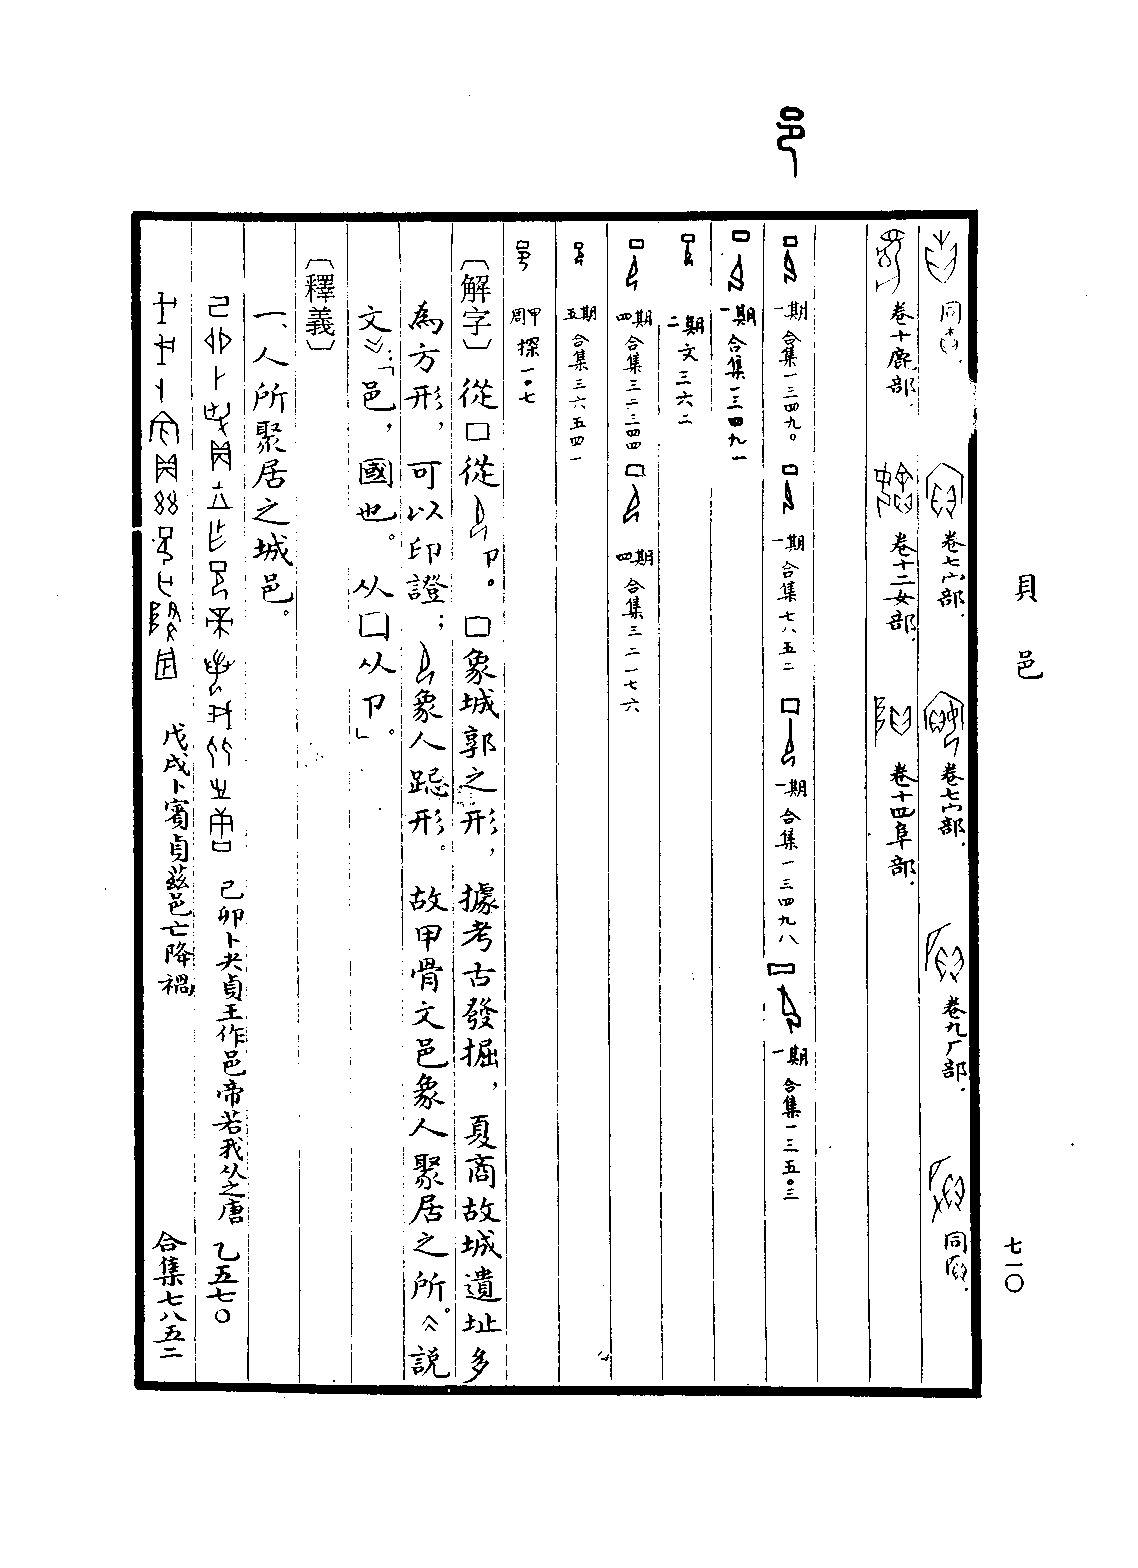 貝 邑
七一〇
同
卷七宀部.
卷七宀部.
卷九厂部.
同
卷十鹿部.
卷十二女部.
卷十四阜部.
邑
一期 合集一三四九〇
一期 合集七八五二
一期 合集一三四九八
一期 合集一三五〇三
一期 合集一三四九一
二期 文三六二
四期 合集三二三四四
四期 合集三二一七六
五期 合集三六五四一
周甲 探一〇七
〔解字〕從囗從卩。囗象城郭之形，據考古發掘，夏商故城遺址多
為方形，可以印證；象人跽形。故甲骨文邑象人聚居之所。《説
文》：「邑，國也。从囗从卩。」
〔釋義〕
一、人所聚居之城邑。
己卯卜央貞王作邑帝若我从之唐 乙五七〇
戊戌卜賓貞茲邑亡降禍 合集七八五二